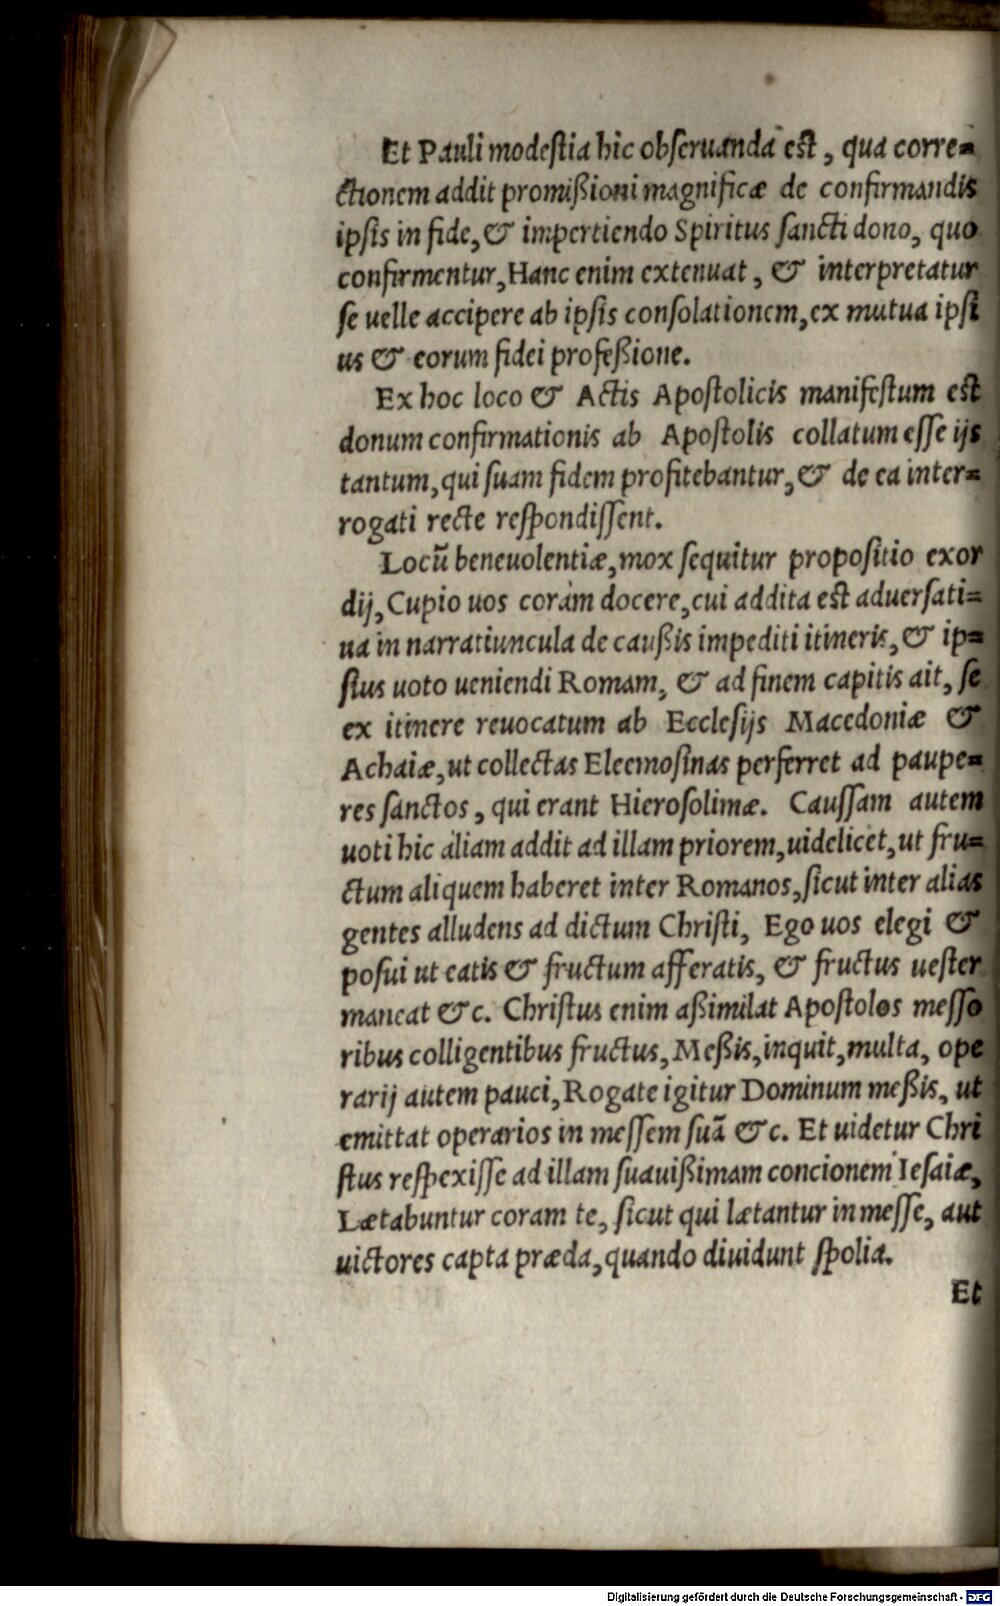 Et Pauli modestia hic obseruanda est, qua corre=
ctionem addit promißioni magnificæ de confirmandis
ipsis in fide, & impertiendo Spiritus sancti dono, quo
confirmentur, Hanc enim extenuat, & interpretatur
se uelle accipere ab ipsis consolationem, ex mutua ipsi
us & eorum fidei profeßione.
Ex hoc loco & Actis Apostolicis manifestum est
donum confirmationis ab Apostolis collatum esse ijs
tantum, qui suam fidem profitebantur, & de ea inter=
rogati recte respondissent.
Locũ beneuolentiæ, mox sequitur propositio exor
dij, Cupio uos coràm docere, cui addita est aduersati=
ua in narratiuncula de caußis impediti itineris, & ip=
sius uoto ueniendi Romam, & ad finem capitis ait, se
ex itinere reuocatum ab Ecclesijs Macedoniæ &
Achaiæ, ut collectas Eleemosinas perferret ad paupe=
res sanctos, qui erant Hierosolimæ. Caussam autem
uoti hic aliam addit ad illam priorem, uidelicet, ut fru=
ctum aliquem haberet inter Romanos, sicut inter alias
gentes alludens ad dictum Christi, Ego uos elegi &
posui ut eatis & fructum afferatis, & fructus uester
maneat &c. Christus enim aßimilat Apostolos messo
ribus colligentibus fructus, Meßis, inquit, multa, ope
rarij autem pauci, Rogate igitur Dominum meßis, ut
emittat operarios in messem suã &c. Et uidetur Chri
stus respexisse ad illam suauißimam concionem Iesaiæ,
Lætabuntur coram te, sicut qui lætantur in messe, aut
uictores capta præda, quando diuidunt spolia.
Et
Digitalisierung gefördert durch die Deutsche Forschungsgemeinschaft - DFG